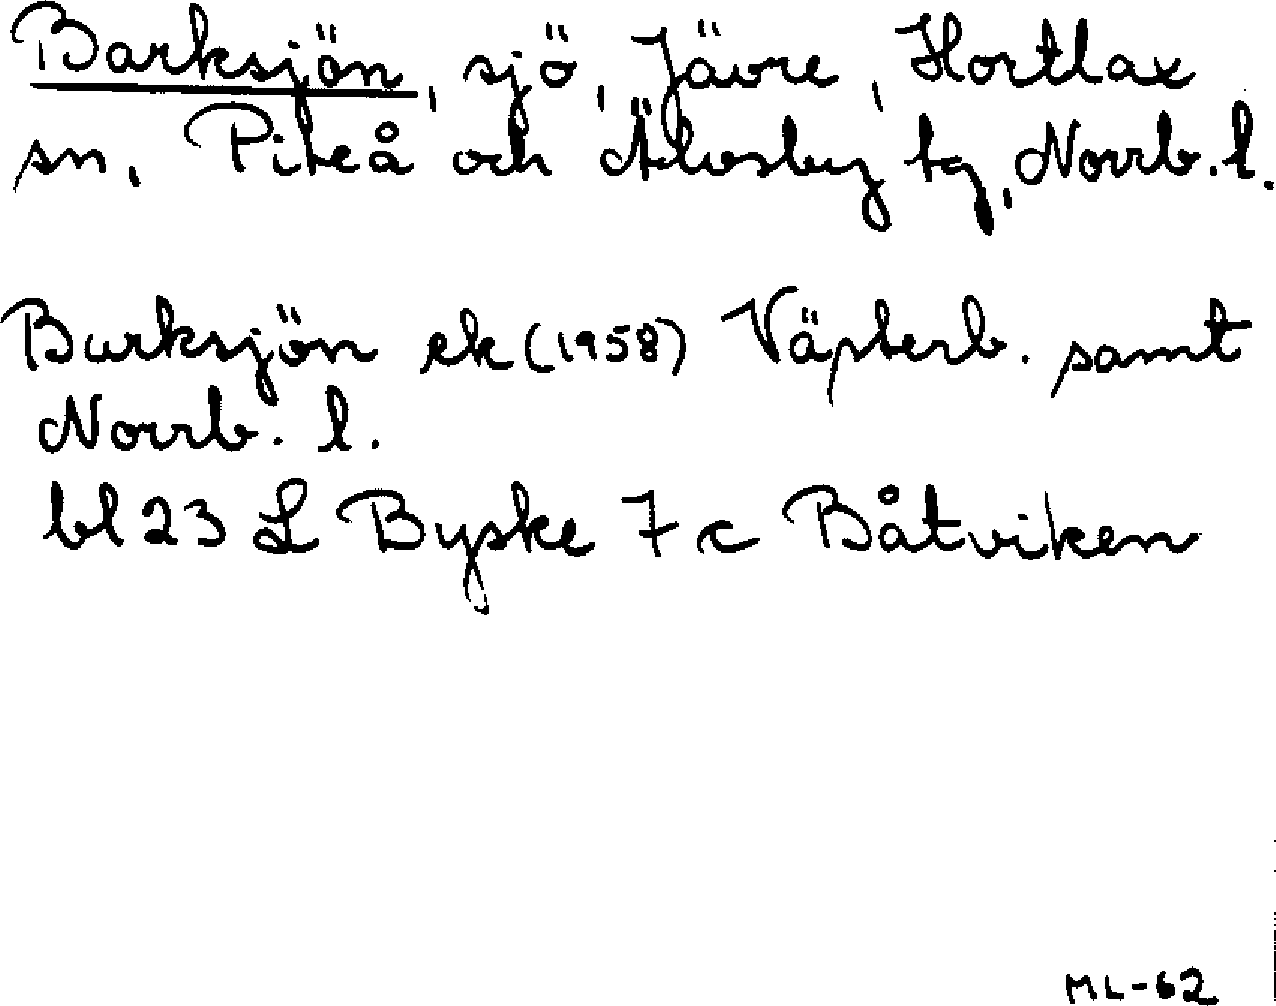 Barksjön, sjö, Jävre, Hortlax
sn, Piteå och Älvsby tg, Norrb. l.
Barksjön ek (1958) Västerb. samt
Norrb. l.
bl 23 L Byske 7 c Båtviken
ML-62